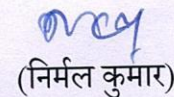 (निर्मल कुमार)